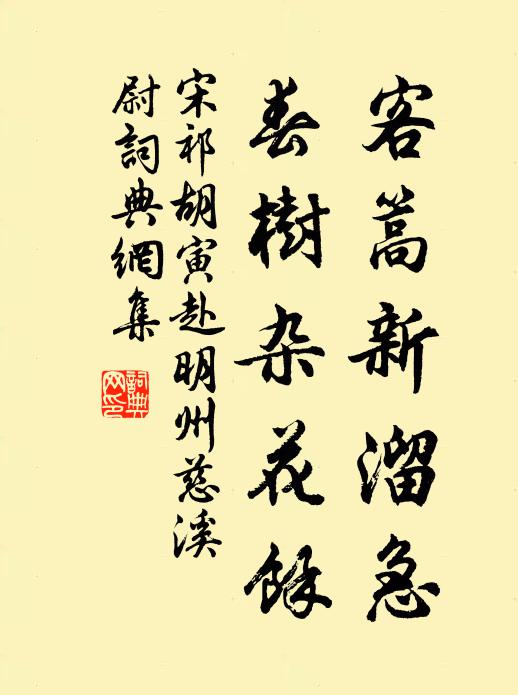 客篙新溜急
春樹杂花餘
宋祁胡寅赴明州慈溪
尉詞典網集
詞典
网印